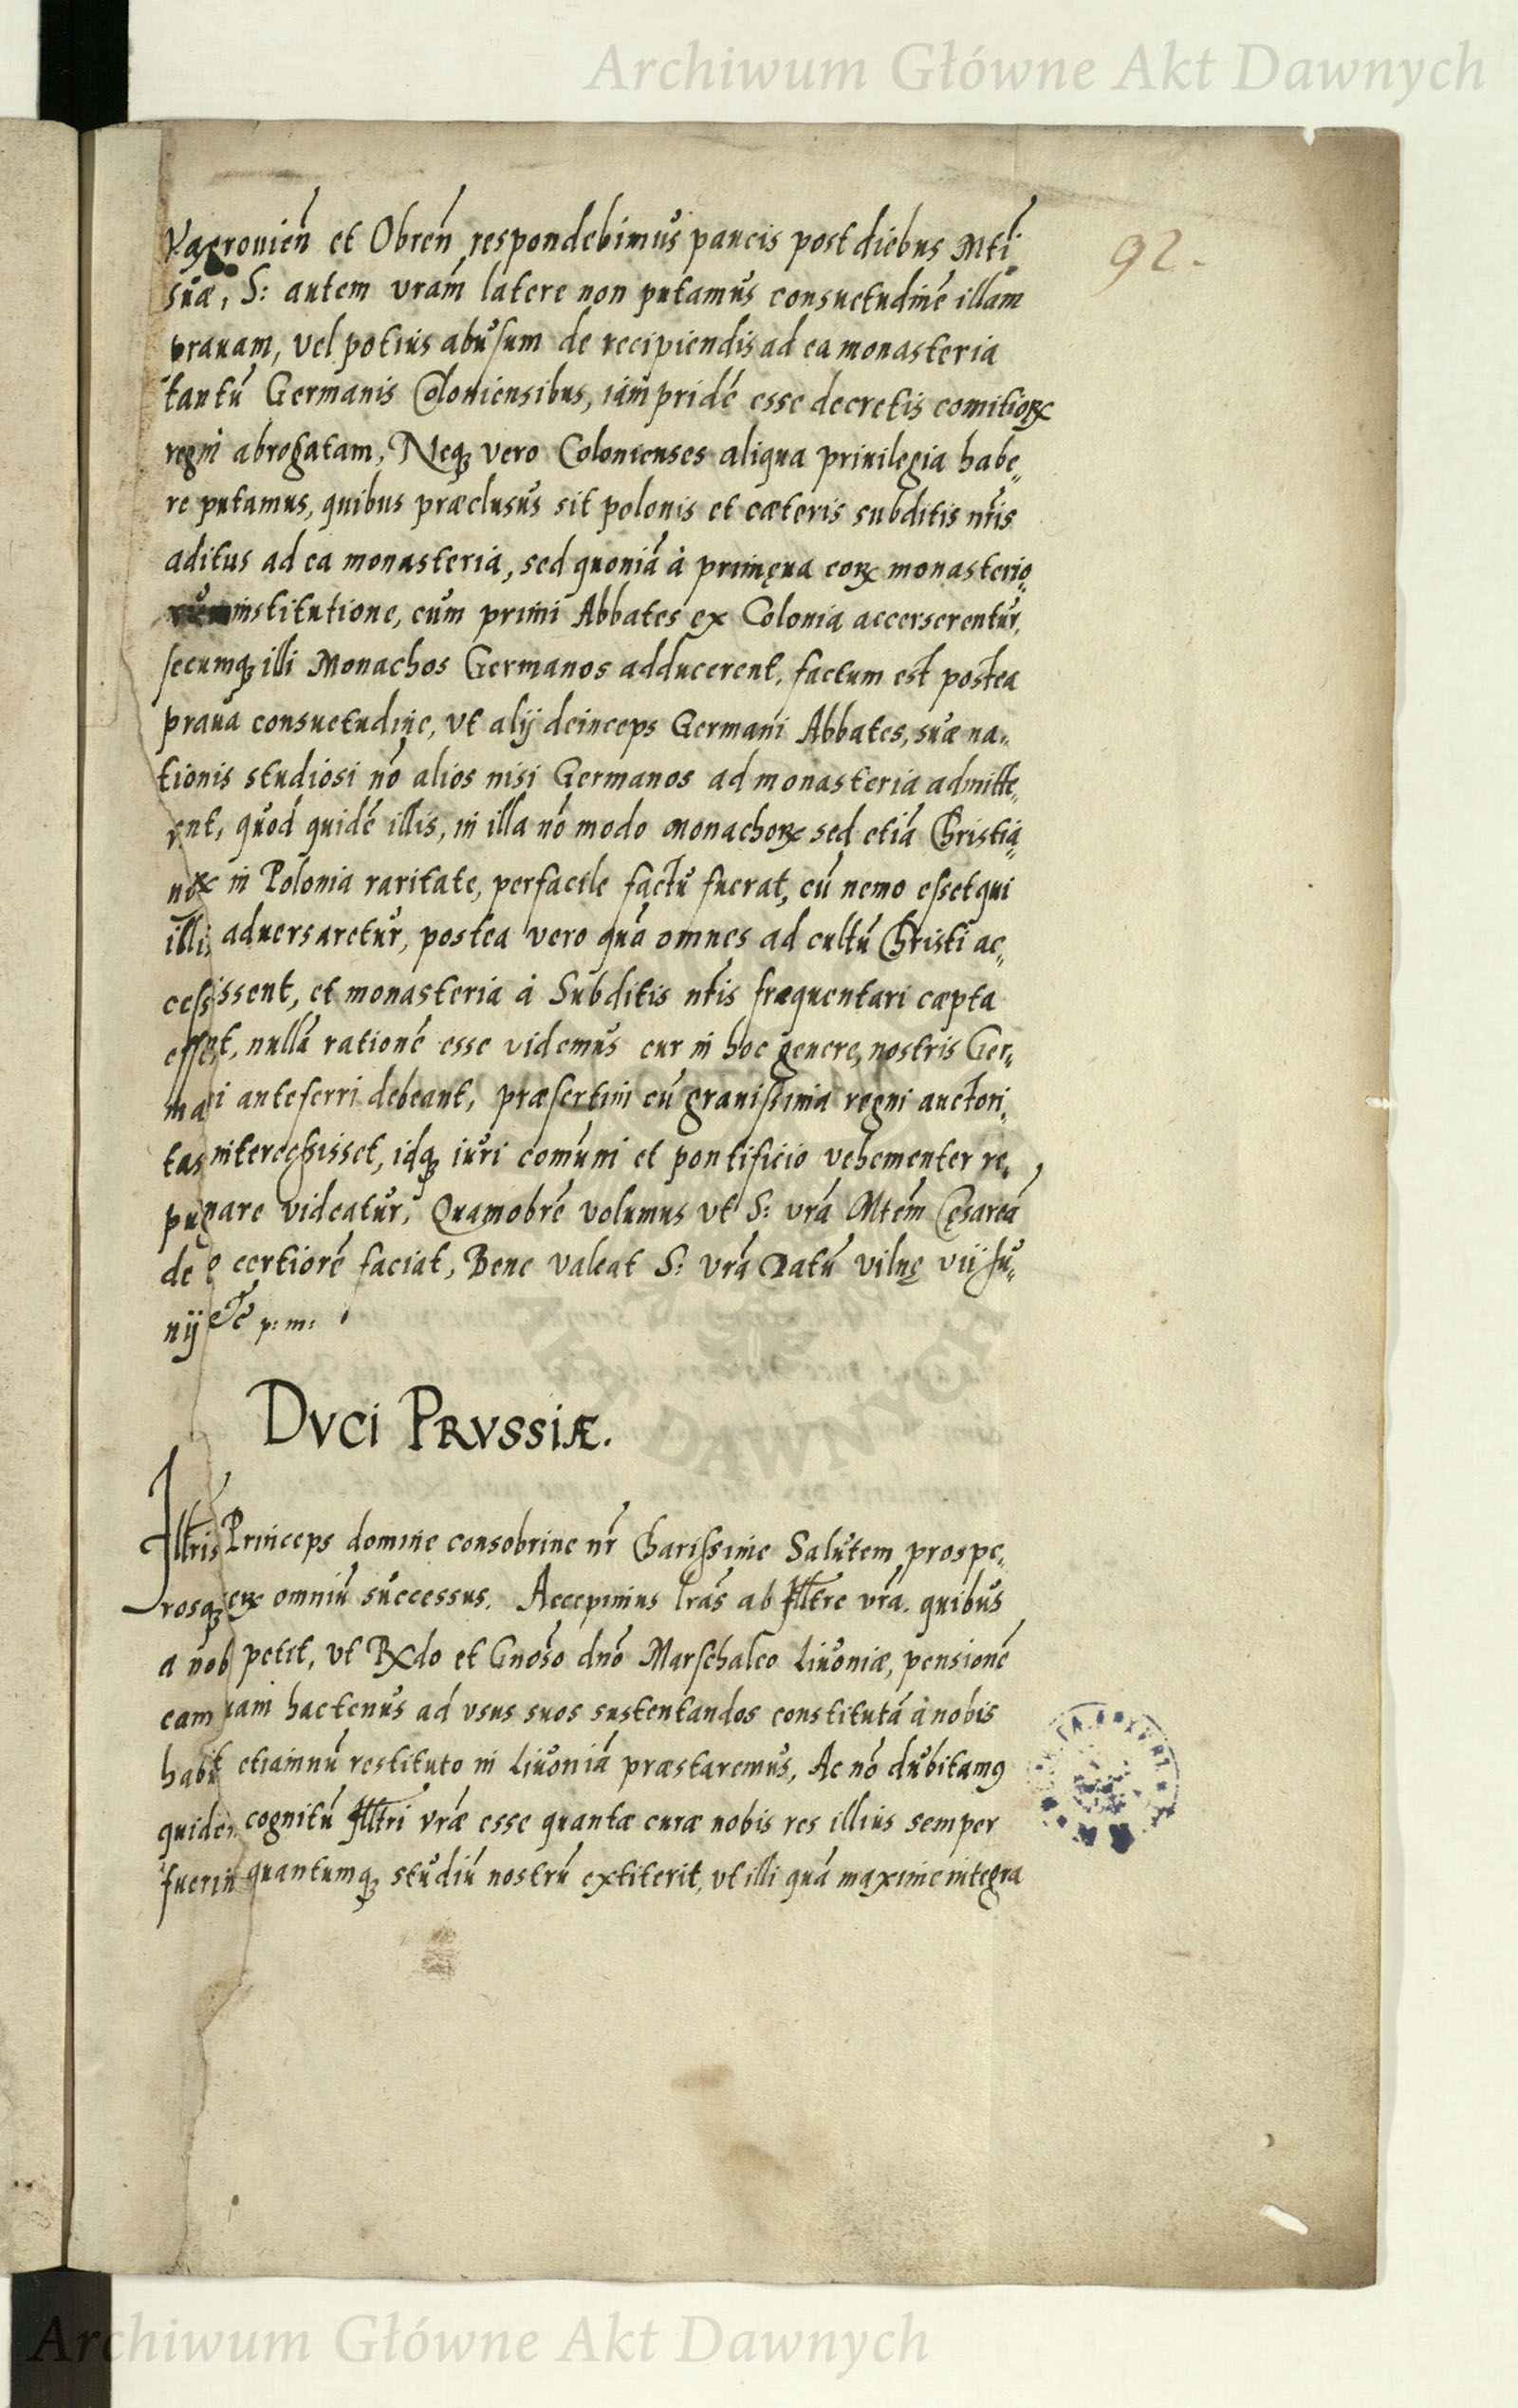 Archiwum Główne Akt Dawnych
92.
Vagrovień et Obreń respondebimus paucis post diebus Mti
suæ, S: autem vram̄ latere non putamus consuetudinē illam
prauam, vel potius abusum de recipiendis ad ea monasteria
tantū Germanis Coloniensibus, iam pridē esse decretis comitioꝝ
regni abrogatam, Neqꝫ vero Colonienses aliqua priuilegia habe„
re putamus, quibus præclusus sit polonis et cæteris subditis nr̄is
aditus ad ea monasteria, sed quoniā à primęua eoꝝ monasterio„
rum institutione, cum primi Abbates ex Colonia accerserentur,
secumqꝫ illi Monachos Germanos adducerent, factum est postea
praua consuetudine, vt alij deinceps Germani Abbates, suæ na„
tionis studiosi nō alios nisi Germanos ad monasteria admitte„
rent, quod quidē illis, in illa nō modo monachoꝝ sed etiā Christia„
noꝝ in Polonia raritate, perfacile factū fuerat, cū nemo esset qui
illis aduersaretur, postea vero quā omnes ad cultū Christi ac„
cessissent, et monasteria à Subditis nr̄is fræquentari cæpta
essent, nullā rationē esse videmus cur in hoc genere, nostris Ger„
mani anteferri debeant, præsertim cū grauissima regni auctori„
tas intercessisset, idqꝫ iuri comuni et pontificio vehementer re„
pugnare videatur, Quamobrē volumus vt S: vrā Mtem̄ Cęsareā
de eo certiorē faciat, Bene valeat S: vrā Datū vilnę vii Ju„
nij etc̄ p: m:
DVCI PRVSSIÆ.
Illtris Princeps domine consobrine nr̄ Charissime Salutem prospe„
rosqꝫ reꝝ omniū successus. Accepimus lrās ab Illtre vrā. quibus
a nobis petit, vt Rꝝdo et Gnoso dn̄o Marschalco Liuoniæ, pensionē
eam quam hactenus ad vsus suos sustentandos constitutā à nobis
habuit etiamnū restituto in Liuoniā præstaremus, Ac nō dubitamꝰ
quidem cognitū Illtri vrǣ esse quantæ curæ nobis res illius semper
fuerint quantumqꝫ studiū nostrū extiterit, vt illi quā maxime integra
AKT DAWNYCH
Archiwum Główne Akt Dawnych